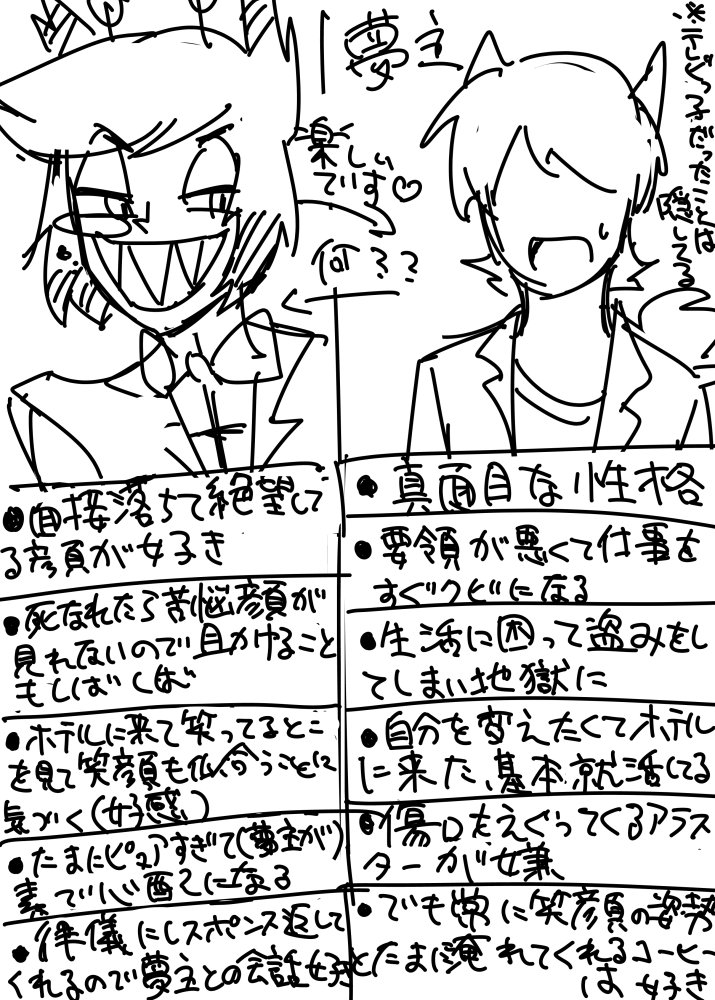 夢主
※デビっ子だったことは
隠してる
楽しい
です♡
何??
●面接落ちて絶望して
る彦頁が好き
●死なれたら苦悩顔が
見れないので
もしばしば
●ホテルに来て笑ってるとこ
を見て笑顔も似合うことに
気づく(好感)
●たまにピュアすぎて(夢主が)
素で心配になる
●律儀にレスポンス返して
くれるので夢主との会話好き
●真面目な性格
●要領が悪くて仕事を
すぐクビになる
●生活に困って盗みをし
てしまい地獄に
●自分を変えたくてホテル
に来た、基本就活してる
●傷口をえぐってくるアラス
ターが嫌
●でも常に笑顔の姿勢
とたまに淹れてくれるコーヒー
は好き